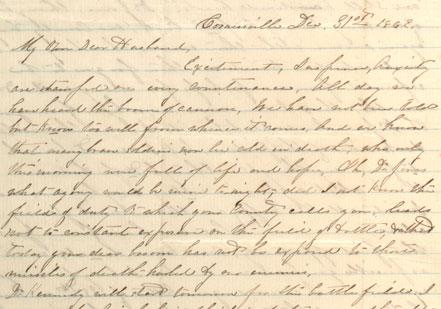 Cornersville Dec 31st 1862
My Own Dear Husband,
Excitement, Suspense, Anxiety
are stamped on every countenance. All day we
have heard the boom of cannon, We have not been told
but know too well from whence it comes, And we know
that many brave soldiers now lie cold in death, who only
this morning were full of life and hope, Oh,
what agony would be mine to-night, did I not know the
field of duty to which your County calls you, leads
not to constant exposure on the field of battle, & that
today your dear bosom has not be exposed to the
missiles of death hurled by our enemies.
Dr Kennedy will start tomorrow for the battle field. I